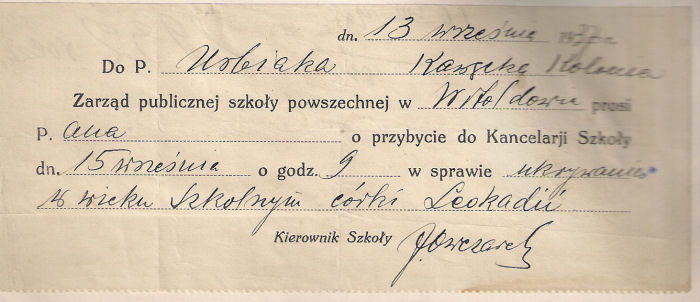 dn. 13 września 1937 r.
Do P. Urbiaka Kawęcka Kolonia
Zarząd publicznej szkoły powszechnej w Witoldowie prosi
P. ana o przybycie do Kancelarji Szkoły
dn. 15 września o godz. 9 w sprawie ukrywania
w wieku szkolnym córki Leokadii
Kierownik Szkoły J. Owczarek